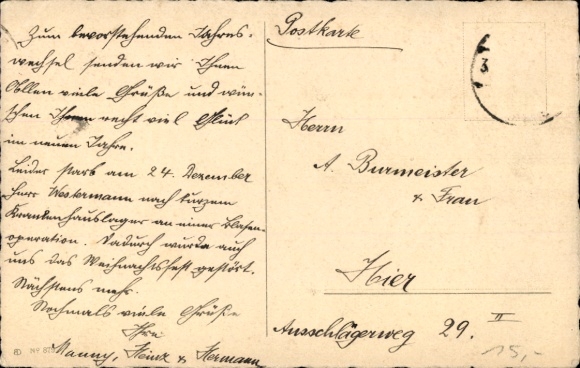 Zum bevorstehenden Jahres-
wechsel senden wir Ihnen
Allen viele Grüße und wün-
schen Ihnen recht viel Glück
im neuen Jahre.
Leider starb am 24. Dezember
Herr Westermann nach kurzem
Krankenhauslager an einer Blasen-
operation. Dadurch wurde auch
uns das Weihnachtsfest gestört.
Nächstens mehr.
Nochmals viele Grüße
Ihre
Nanny, Heinz & Hermann
Postkarte
3
Herrn
A. Burmeister
& Frau
Hier
Ausschlägerweg 29. II
15,-